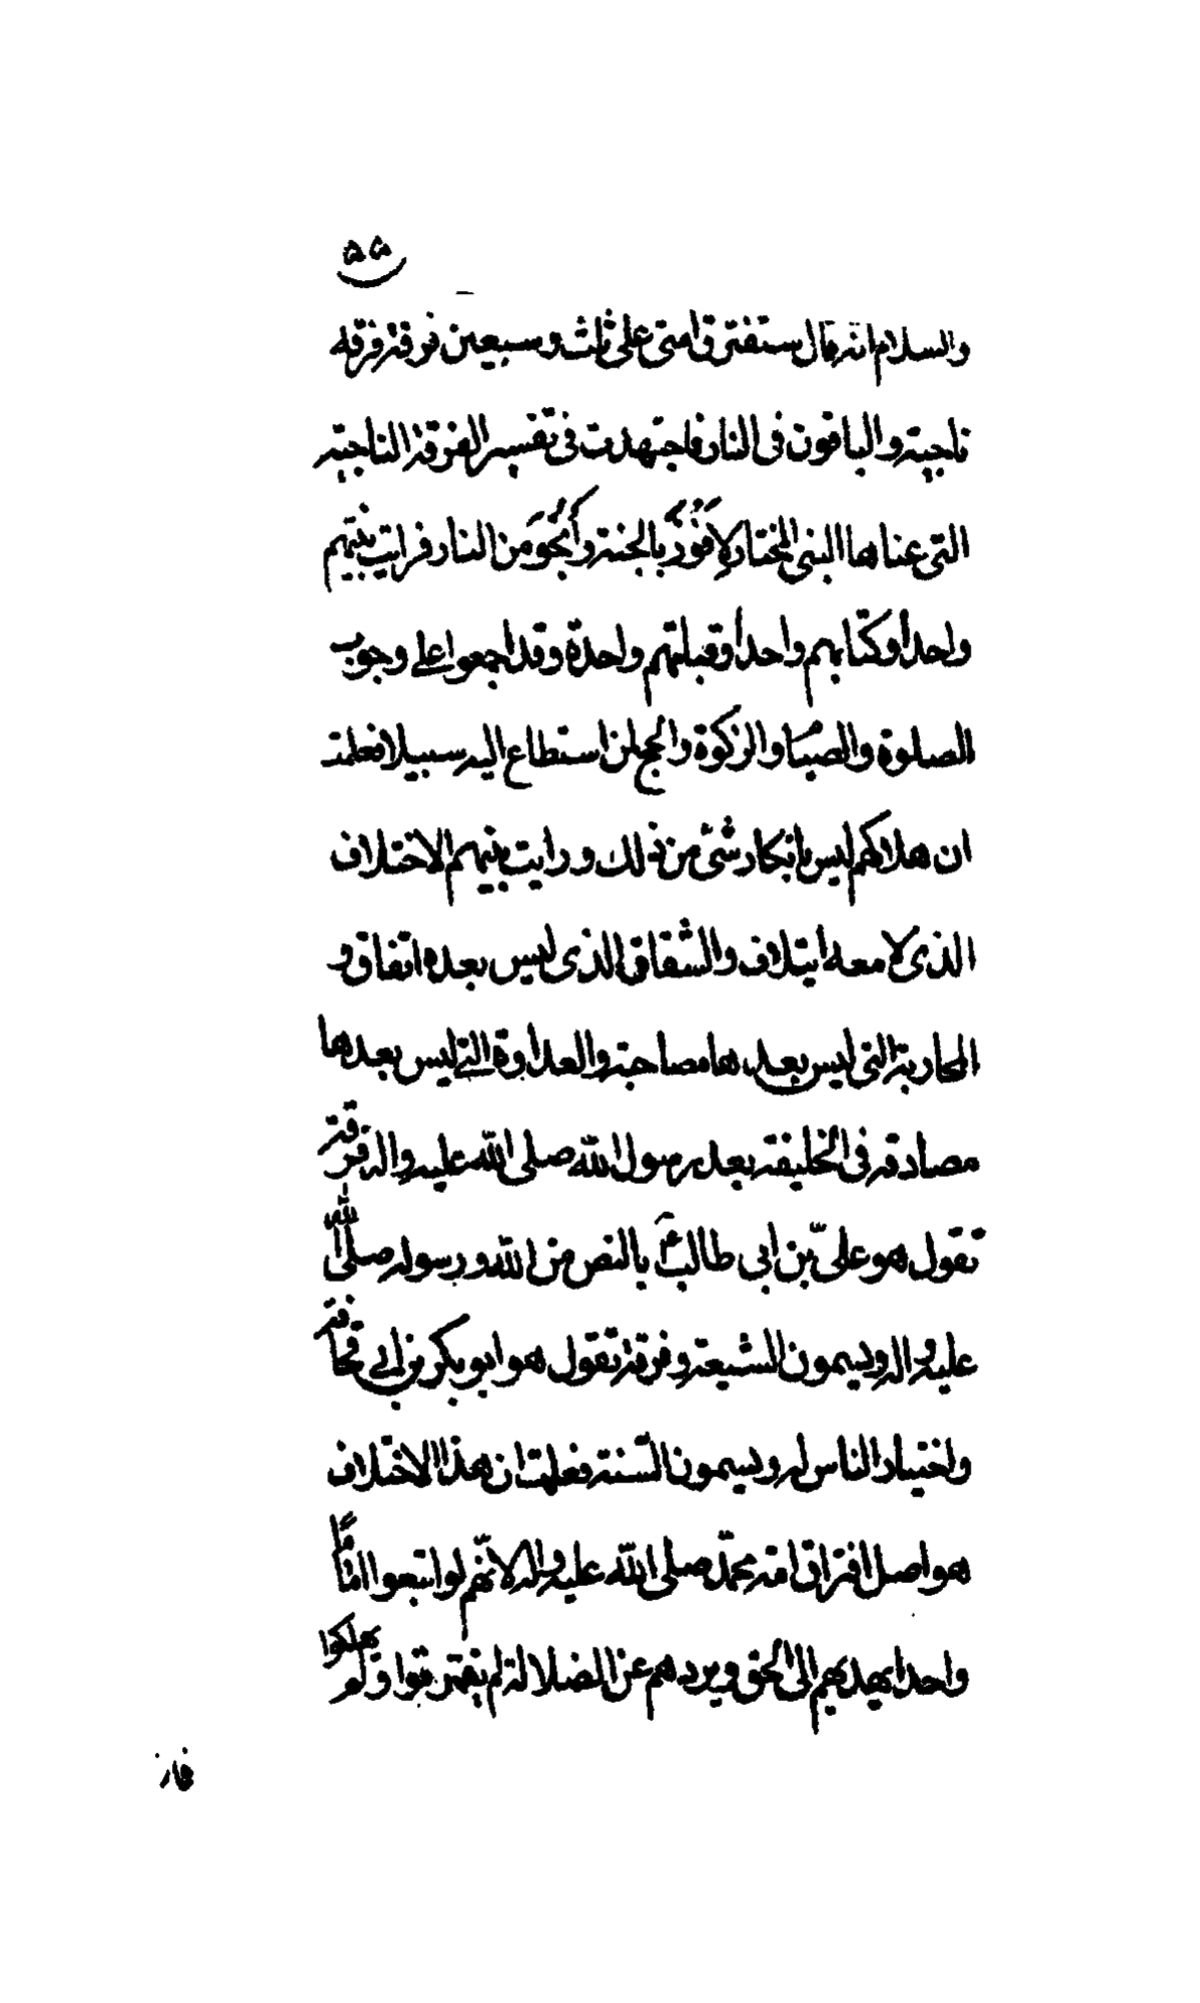 ۵۵
والسلام انه قال ستفترق امتی علی ثلث و سبعین فرقة فرقه
ناجیة والباقون فی النار فاجتهدت فی تفسیر الفرقة الناجیة
التی عناها النبی المختار لِاَفُوزَ بالجنة و أَنْجُوَ من النار فرایت نبیهم
واحداً و کتابهم واحداً وقبلتهم واحدة و قد اجمعوا علی وجوب
الصلوة والصیام والزکوة والحج لمن استطاع الیه سبیلا فعلمت
ان هلاکهم لیس بانکار شئ من ذلک و رایت بینهم الاختلاف
الذی لا معه ایتلاف والشقاق الذی لیس بعده اتفاق و
المحاربة التی لیس بعدها مصاحبة والعداوة التی لیس بعدها
مصادقه فی الخلیفة بعد رسول الله صلی الله علیه واله فرقة
تقول هو علیّ بن ابی طالبؑ بالنص من الله و رسوله صلی الله
علیه واله ویسمون الشیعة وفرقة تقول هو ابو بکر بن ابی قحافة
واختیار الناس له ویسمون السنة فعلمت ان هذا الاختلاف
هو اصل افتراق امة محمّد صلی الله علیه واله لانّهم لو اتبعوا امامًا
واحدا یهدیهم الی الحق ویردهم عن الضلالة لم یفترقوا ولم یهلکوا